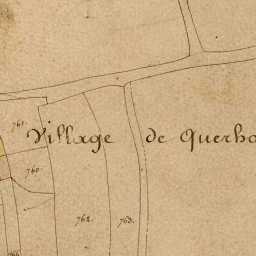 761.
Village de Querho
760.
762.
763.